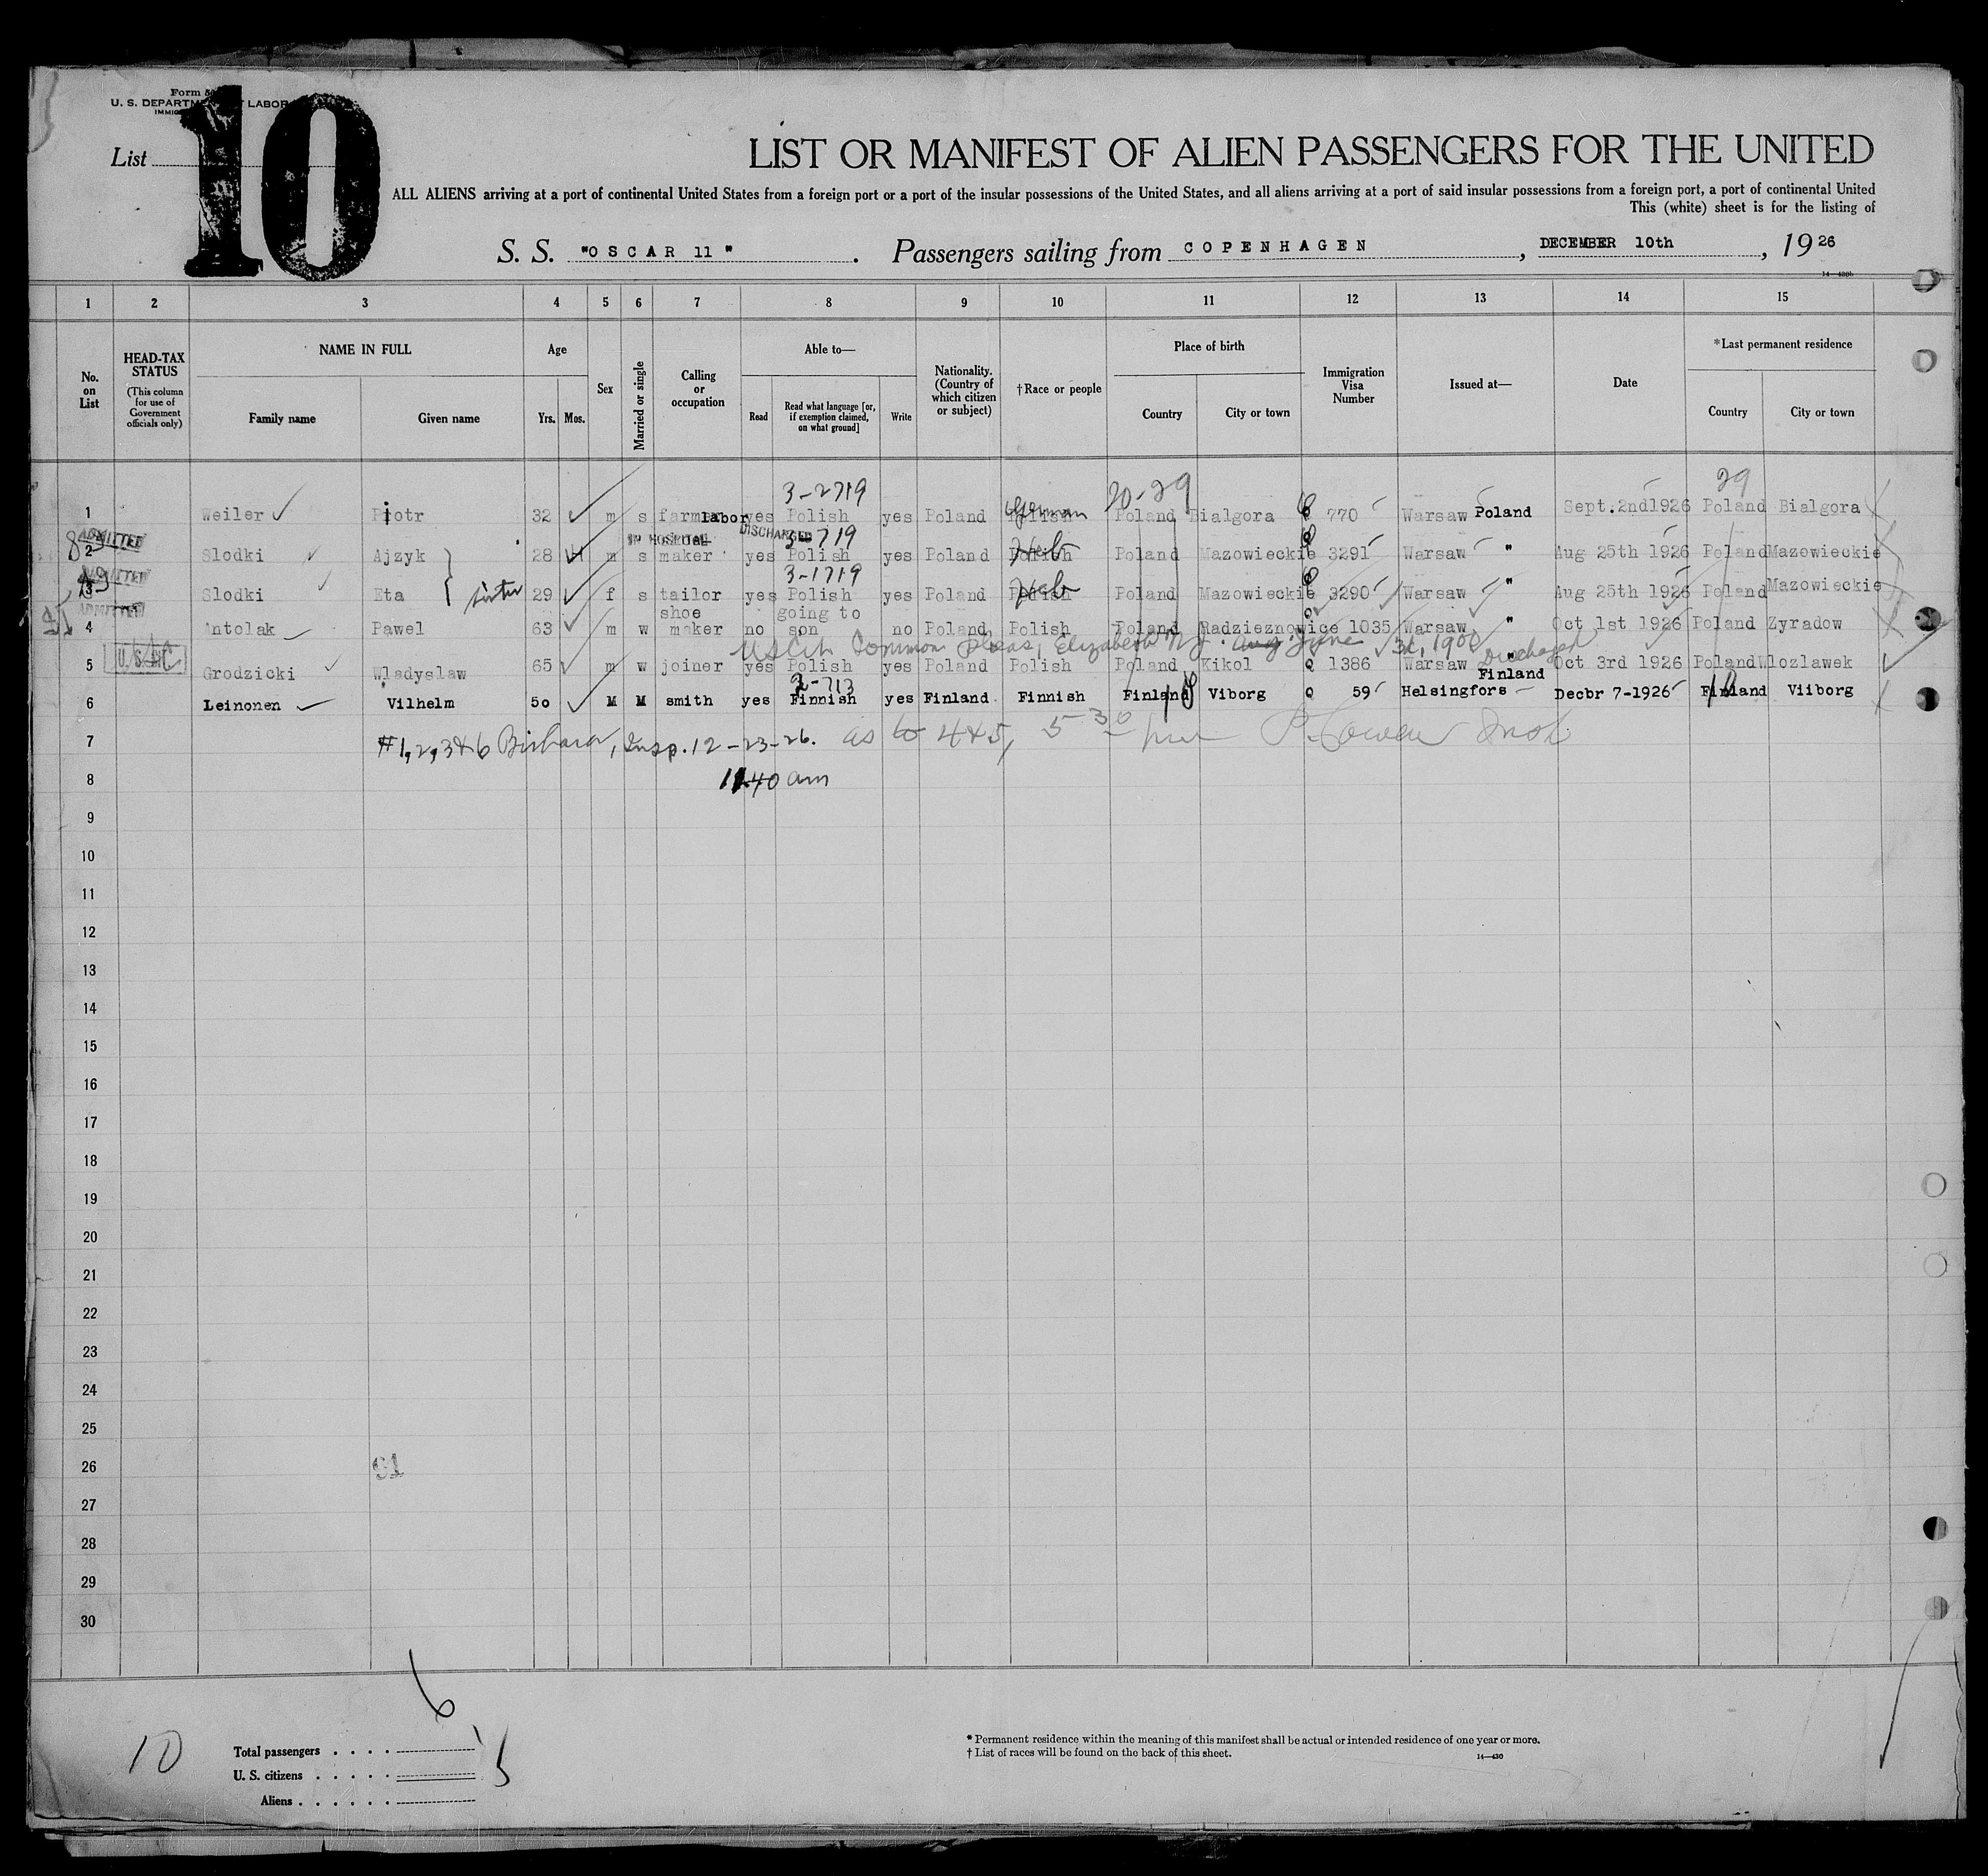 Form 50
U. S. DEPARTMENT OF LABOR
List
10
LIST OR MANIFEST OF ALIEN PASSENGERS FOR THE UNITED
ALL ALIENS arriving at a port of continental United States from a foreign port or a port of the insular possessions of the United States, and all aliens arriving at a port of said insular possessions from a foreign port, a port of continental United
This (white) sheet is for the listing of
S. S. "OSCAR 11". Passengers sailing from COPENHAGEN, DECEMBER 10th, 19 26
1 2 3 4 5 6 7 8 9 10 11 12 13 14 15
No. on List
HEAD-TAX STATUS (This column for use of Government officials only)
NAME IN FULL
Family name Given name
Age
Yrs. Mos.
Sex
Married or single
Calling or occupation
Able to—
Read Read what language [or, if exemption claimed, on what ground] Write
Nationality. (Country of which citizen or subject)
†Race or people
Place of birth
Country City or town
Immigration Visa Number
Issued at—
Date
*Last permanent residence
Country City or town
3-2719 20-29 29
1 Weiler Piotr 32 m s farm labor yes Polish yes Poland German Polish Poland Bialgora 770 Warsaw Poland Sept.2nd1926 Poland Bialgora
ADMITTED IN HOSPITAL DISCHARGED 3-719
2 Slodki Ajzyk 28 m s maker yes Polish yes Poland Heb Polish Poland Mazowieckie 3291 Warsaw " Aug 25th 1926 Poland Mazowieckie
ADMITTED 3-1719
3 Slodki Eta sister 29 f s tailor yes Polish yes Poland Heb Polish Poland Mazowieckie 3290 Warsaw " Aug 25th 1926 Poland Mazowieckie
ADMITTED
4 Antolak Pawel 63 m w shoe maker no going to son no Poland Polish Poland Radzieznowice 1035 Warsaw " Oct 1st 1926 Poland Zyradow
Common Pleas, Elizabeth N J. Aug June 1900 Discharged
5 U. S. Grodzicki Wladyslaw 65 m w joiner yes Polish yes Poland Polish Poland Kikol 1386 Warsaw " Oct 3rd 1926 Poland Wlozlawek
6 Leinonen Vilhelm 50 M M smith yes Finnish yes Finland Finnish Finland Viborg 59 Helsingfors Finland Decbr 7-1926 Finland Viiborg
7 #1,2,3&6 , Insp. 12-23-26. as to 4&5, 5 30
8 11.40 am
9
10
11
12
13
14
15
16
17
18
19
20
21
22
23
24
25
26 91
27
28
29
30
6
10
Total passengers
U. S. citizens
Aliens
* Permanent residence within the meaning of this manifest shall be actual or intended residence of one year or more.
† List of races will be found on the back of this sheet. 14—430